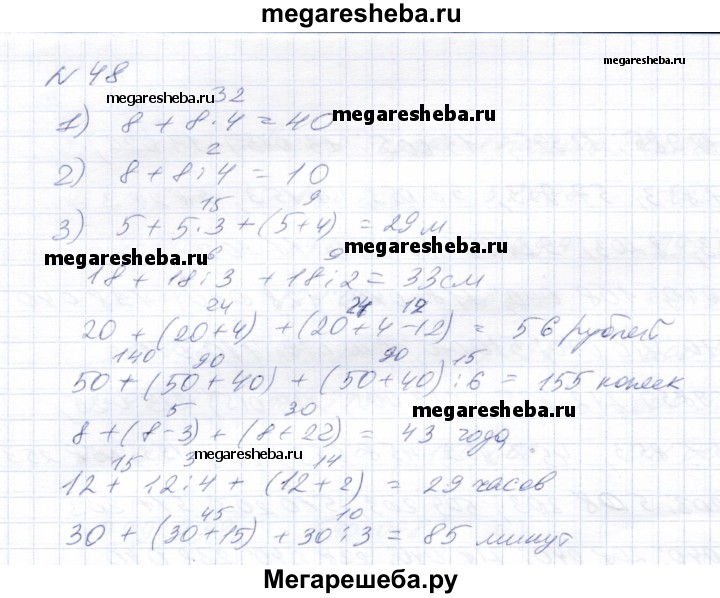 megaresheba.ru
N 48
megaresheba.ru
megaresheba.ru 32
1) 8 + 8 · 4 = 40 megaresheba.ru
2
2) 8 + 8 : 4 = 10
15 9
3) 5 + 5 · 3 + (5 + 4) = 29 м
megaresheba.ru 6 9 megaresheba.ru
18 + 18 : 3 + 18 : 2 = 33 см
24 24 12
20 + (20 + 4) + (20 + 4 - 12) = 56 рублей
140 90 90 15
50 + (50 + 40) + (50 + 40) : 6 = 155 копеек
5 30 megaresheba.ru
8 + (8 - 3) + (8 + 22) = 43 года
15 3 megaresheba.ru 14
12 + 12 : 4 + (12 + 2) = 29 часов
45 10
30 + (30 + 15) + 30 : 3 = 85 минут
Мегарешеба.ру